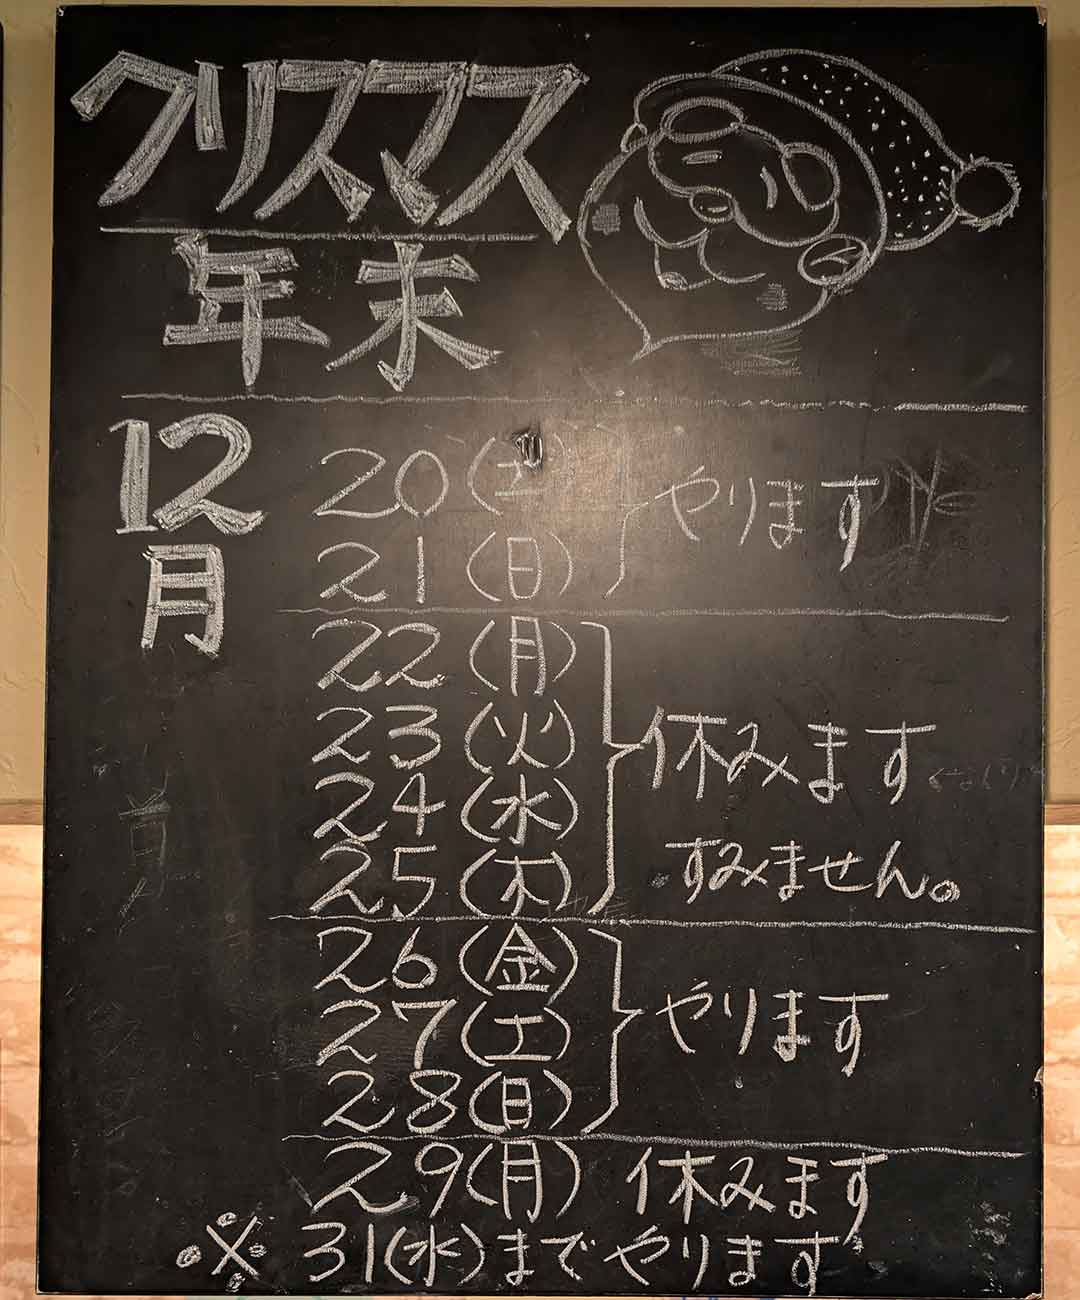 クリスマス
年末
12月
20(土)
21(日)
やります
22(月)
23(火)
24(水)
25(木)
休みます
すみません。
26(金)
27(土)
28(日)
やります
29(月) 休みます
※31(水)までやります